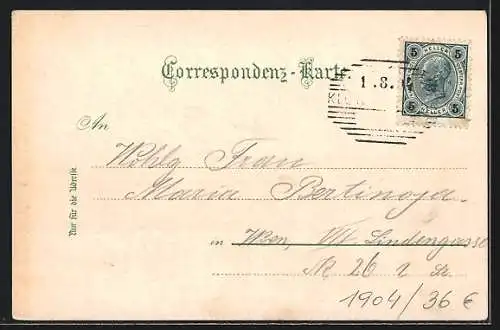 5 HELLER 5
5 HELLER 5
Correspondenz-Karte
1.8.
An
Wohlg Frau
Maria Bertinoja
in Wien, VII. Lindengasse
Nr 26
1904/36 €
Nur für die Adresse